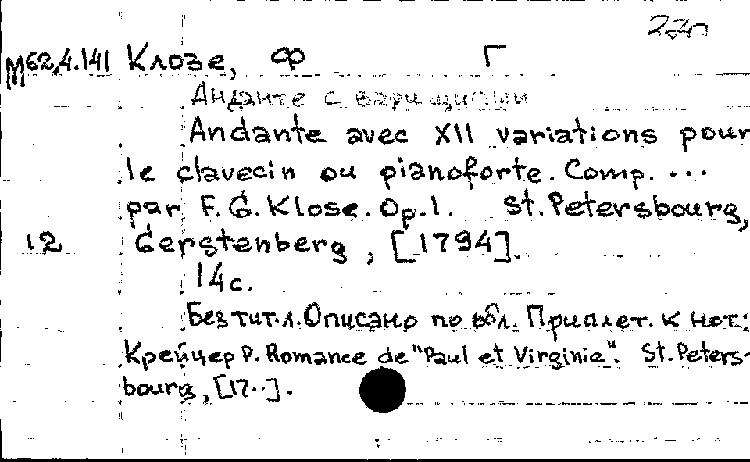 M62,4.141 Клозе, Ф Г
Анданте с вариациями
Andante avec XII variations pour
le clavecin ou pianoforte. Comp. ...
par F. G. Klose. Op.1. St. Petersbourg,
12 Gerstenberg, [1794].
14 с.
Без тит.л. Описано по обл. Приплет. к нот:
Крейцер Р. Romance de "Paul et Virginie". St. Peters-
bourg, [17..].